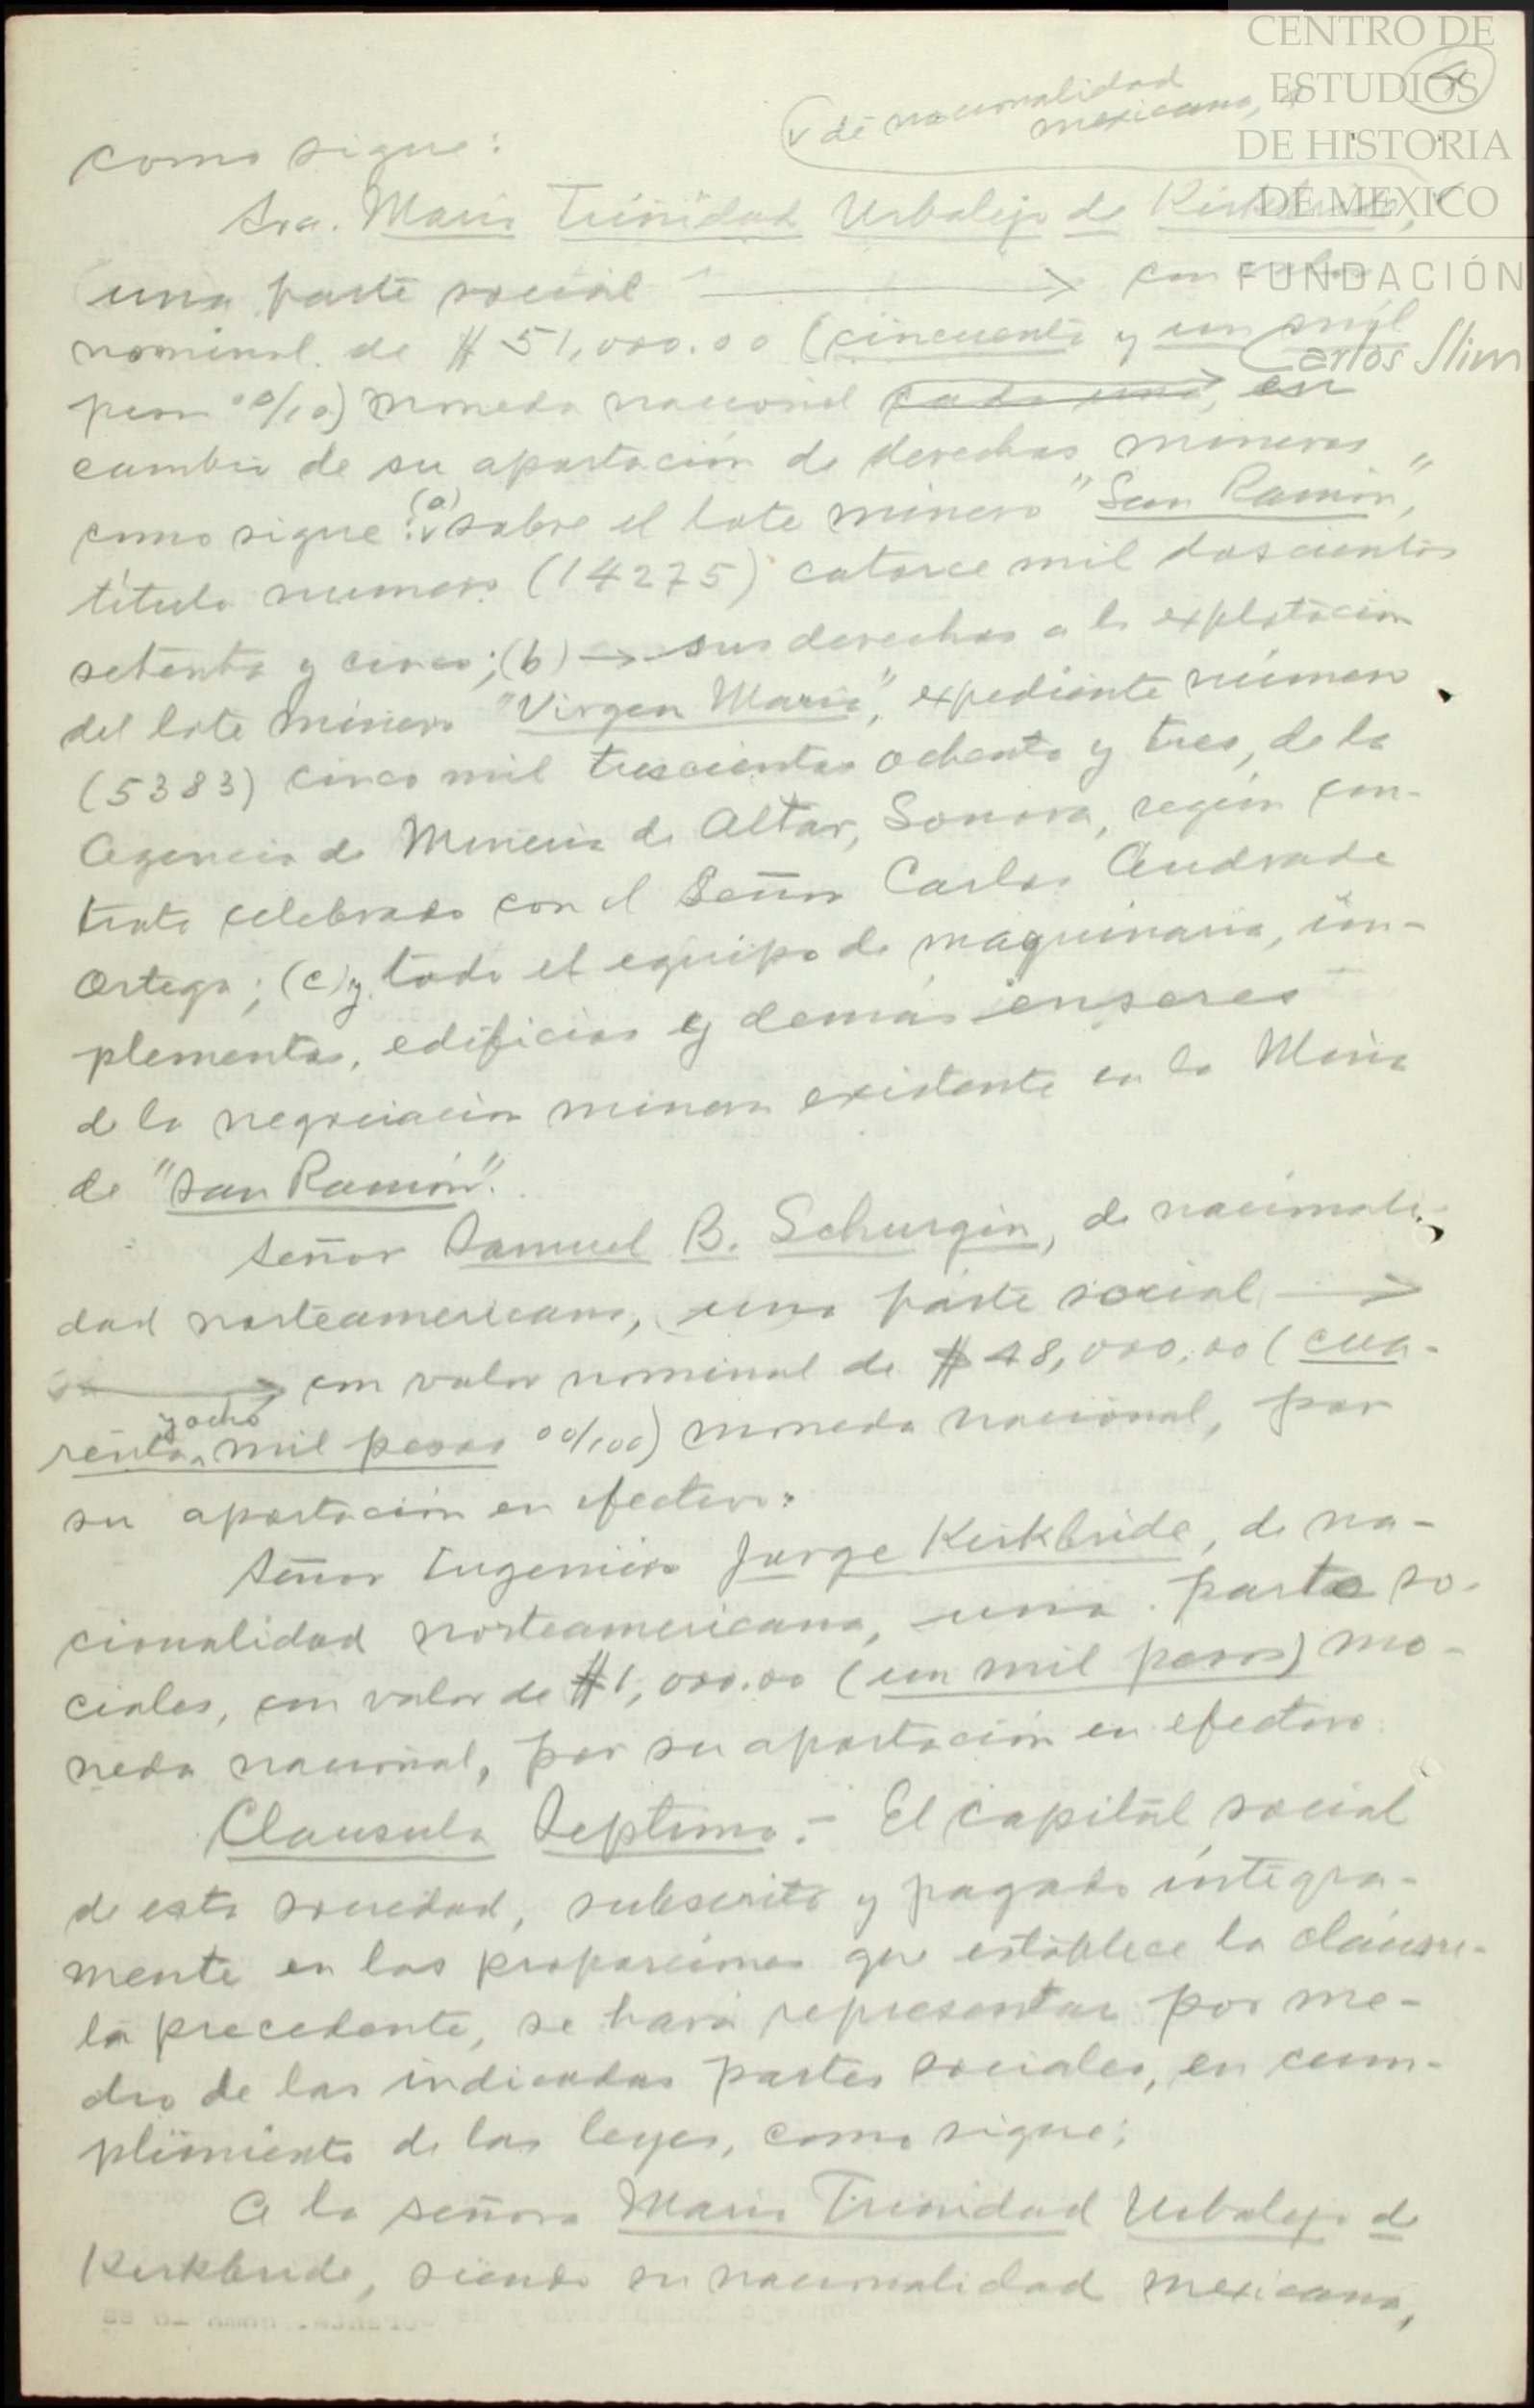 CENTRO DE
ESTUDIOS
DE HISTORIA
DE MEXICO
FUNDACIÓN
Carlos Slim
de nacionalidad
mexicana,
como sigue:
Sra. Maria Trinidad Urbalejo de Kirkbride,
una parte social con valor
nominal de $51,000.00 (cincuenta y un mil
pesos 00/00) moneda nacional cada una, en
cambio de su aportación de derechos mineros
como sigue: (a) sobre el lote minero "San Ramón",
título numero (14275) catorce mil doscientos
setenta y cinco; (b) sus derechos a la explotación
del lote minero "Virgen Maria", expediente número
(5383) cinco mil trescientos ochenta y tres, de la
Agencia de Mineria de Altar, Sonora, según con-
trato celebrado con el Señor Carlos Andrade
Ortega; (c) y todo el equipo de maquinaria, im-
plementos, edificios y demás enseres
de la negociación minera existente en la Mina
de "San Ramón".
Señor Samuel B. Schurgin, de nacionali-
dad norteamericana, una parte social
con valor nominal de $48,000.00 (cua-
renta y ocho mil pesos 00/100) moneda nacional, por
su aportación en efectivo.
Señor Eugenio Jorge Kirkbride, de na-
cionalidad norteamericana, una parte so-
ciales, con valor de $1,000.00 (un mil pesos) mo-
neda nacional, por su aportación en efectivo.
Clausula Septima.- El capital social
de esta sociedad, subscrito y pagado íntegra-
mente en las proporciones que establece la cláusu-
la precedente, se hará representar por me-
dio de las indicadas partes sociales, en cum-
plimiento de las leyes, como sigue:
A la señora Maria Trinidad Urbalejo de
Kirkbride, siendo su nacionalidad mexicana,